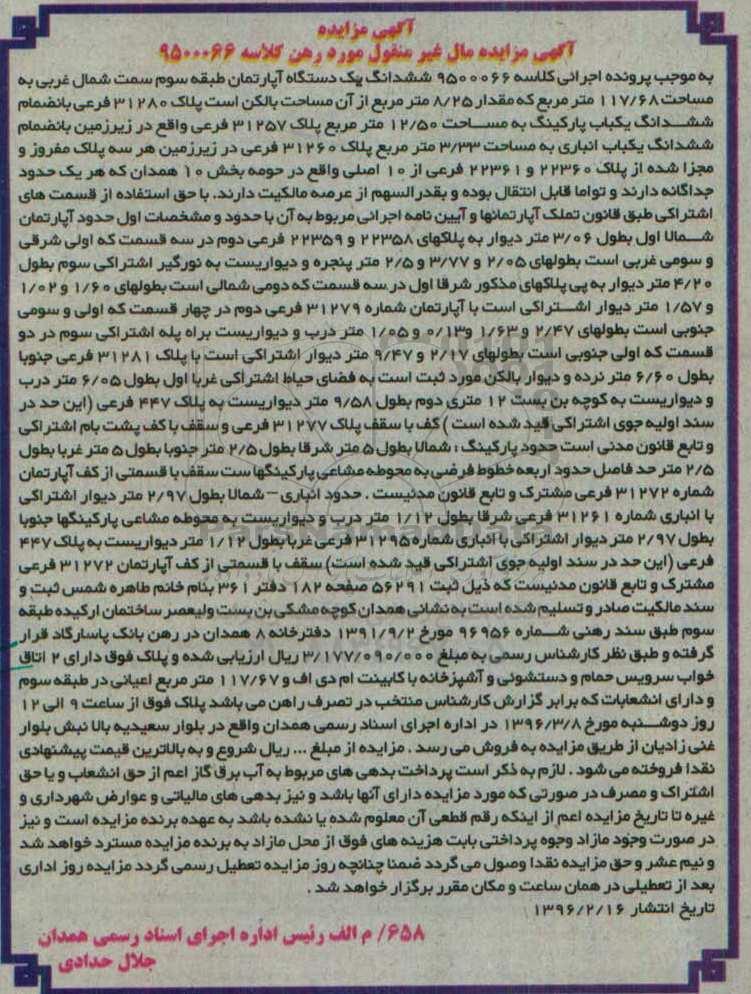 آگهی مزایده
آگهی مزایده مال غیر منقول مورد رهن کلاسه ۹۵۰۰۰۶۶
به موجب پرونده اجرائی کلاسه ۹۵۰۰۰۶۶ ششدانگ یک دستگاه آپارتمان طبقه سوم سمت شمال غربی به
مساحت ۱۱۷/۶۸ متر مربع که مقدار ۸/۲۵ متر مربع از آن مساحت بالکن است پلاک ۳۱۲۸۰ فرعی بانضمام
ششدانگ یکباب پارکینگ به مساحت ۱۲/۵۰ متر مربع پلاک ۳۱۲۵۷ فرعی واقع در زیرزمین بانضمام
ششدانگ یکباب انباری به مساحت ۳/۳۳ متر مربع پلاک ۳۱۲۶۰ فرعی در زیرزمین هر سه پلاک مفروز و
مجزا شده از پلاک ۲۲۳۶۰ و ۲۲۳۶۱ فرعی از ۱۰ اصلی واقع در حومه بخش ۱۰ همدان که هر یک حدود
جداگانه دارند و تواما قابل انتقال بوده و بقدرالسهم از عرصه مالکیت دارند. با حق استفاده از قسمت های
اشتراکی طبق قانون تملک آپارتمانها و آیین نامه اجرائی مربوط به آن با حدود و مشخصات اول حدود آپارتمان
شمالا اول بطول ۳/۰۶ متر دیوار به پلاکهای ۲۲۳۵۸ و ۲۲۳۵۹ فرعی دوم در سه قسمت که اولی شرقی
و سومی غربی است بطولهای ۲/۰۵ و ۳/۷۷ و ۲/۵ متر پنجره و دیواریست به نورگیر اشتراکی سوم بطول
۴/۲۰ متر دیوار به پی پلاکهای مذکور شرقا اول در سه قسمت که دومی شمالی است بطولهای ۱/۶۰ و ۱/۰۲
و ۱/۵۷ متر دیوار اشتراکی است با آپارتمان شماره ۳۱۲۷۹ فرعی دوم در چهار قسمت که اولی و سومی
جنوبی است بطولهای ۲/۴۷ و ۱/۶۳ و ۰/۱۳ و ۱/۰۵ متر درب و دیواریست براه پله اشتراکی سوم در دو
قسمت که اولی جنوبی است بطولهای ۲/۱۷ و ۹/۴۷ متر دیوار اشتراکی است با پلاک ۳۱۲۸۱ فرعی جنوبا
بطول ۶/۶۰ متر نرده و دیوار بالکن مورد ثبت است به فضای حیاط اشتراکی غربا اول بطول ۶/۰۵ متر درب
و دیواریست به کوچه بن بست ۱۲ متری دوم بطول ۹/۵۸ متر دیواریست به پلاک ۴۴۷ فرعی (این حد در
سند اولیه جوی اشتراکی قید شده است ) کف با سقف پلاک ۳۱۲۷۷ فرعی و سقف با کف پشت بام اشتراکی
و تابع قانون مدنی است حدود پارکینگ : شمالا بطول ۵ متر شرقا بطول ۲/۵ متر جنوبا بطول ۵ متر غربا بطول
۲/۵ متر حد فاصل حدود اربعه خطوط فرضی به محوطه مشاعی پارکینگها ست سقف با قسمتی از کف آپارتمان
شماره ۳۱۲۷۲ فرعی مشترک و تابع قانون مدنیست . حدود انباری – شمالا بطول ۲/۹۷ متر دیوار اشتراکی
با انباری شماره ۳۱۲۶۱ فرعی شرقا بطول ۱/۱۲ متر درب و دیواریست به محوطه مشاعی پارکینگها جنوبا
بطول ۲/۹۷ متر دیوار اشتراکی با انباری شماره ۳۱۲۹۵ فرعی غربا بطول ۱/۱۲ متر دیواریست به پلاک ۴۴۷
فرعی (این حد در سند اولیه جوی اشتراکی قید شده است) سقف با قسمتی از کف آپارتمان ۳۱۲۷۲ فرعی
مشترک و تابع قانون مدنیست که ذیل ثبت ۵۶۲۹۱ صفحه ۱۸۲ دفتر ۳۶۱ بنام خانم طاهره شمس ثبت و
سند مالکیت صادر و تسلیم شده است به نشانی همدان کوچه مشکی بن بست ولیعصر ساختمان ارکیده طبقه
سوم طبق سند رهنی شماره ۹۶۹۵۶ مورخ ۱۳۹۱/۹/۲ دفترخانه ۸ همدان در رهن بانک پاسارگاد قرار
گرفته و طبق نظر کارشناس رسمی به مبلغ ۳/۱۷۷/۰۹۰/۰۰۰ ریال ارزیابی شده و پلاک فوق دارای ۲ اتاق
خواب سرویس حمام و دستشوئی و آشپزخانه با کابینت ام دی اف و ۱۱۷/۶۷ متر مربع اعیانی در طبقه سوم
و دارای انشعابات که برابر گزارش کارشناس منتخب در تصرف راهن می باشد پلاک فوق از ساعت ۹ الی ۱۲
روز دوشنبه مورخ ۱۳۹۶/۳/۸ در اداره اجرای اسناد رسمی همدان واقع در بلوار سعیدیه بالا نبش بلوار
غنی زادیان از طریق مزایده به فروش می رسد . مزایده از مبلغ ... ریال شروع و به بالاترین قیمت پیشنهادی
نقدا فروخته می شود . لازم به ذکر است پرداخت بدهی های مربوط به آب برق گاز اعم از حق انشعاب و یا حق
اشتراک و مصرف در صورتی که مورد مزایده دارای آنها باشد و نیز بدهی های مالیاتی و عوارض شهرداری و
غیره تا تاریخ مزایده اعم از اینکه رقم قطعی آن معلوم شده یا نشده باشد به عهده برنده مزایده است و نیز
در صورت وجود مازاد وجوه پرداختی بابت هزینه های فوق از محل مازاد به برنده مزایده مسترد خواهد شد
و نیم عشر و حق مزایده نقدا وصول می گردد ضمنا چنانچه روز مزایده تعطیل رسمی گردد مزایده روز اداری
بعد از تعطیلی در همان ساعت و مکان مقرر برگزار خواهد شد .
تاریخ انتشار ۱۳۹۶/۲/۱۶
۶۵۸/ م الف رئیس اداره اجرای اسناد رسمی همدان
جلال حدادی